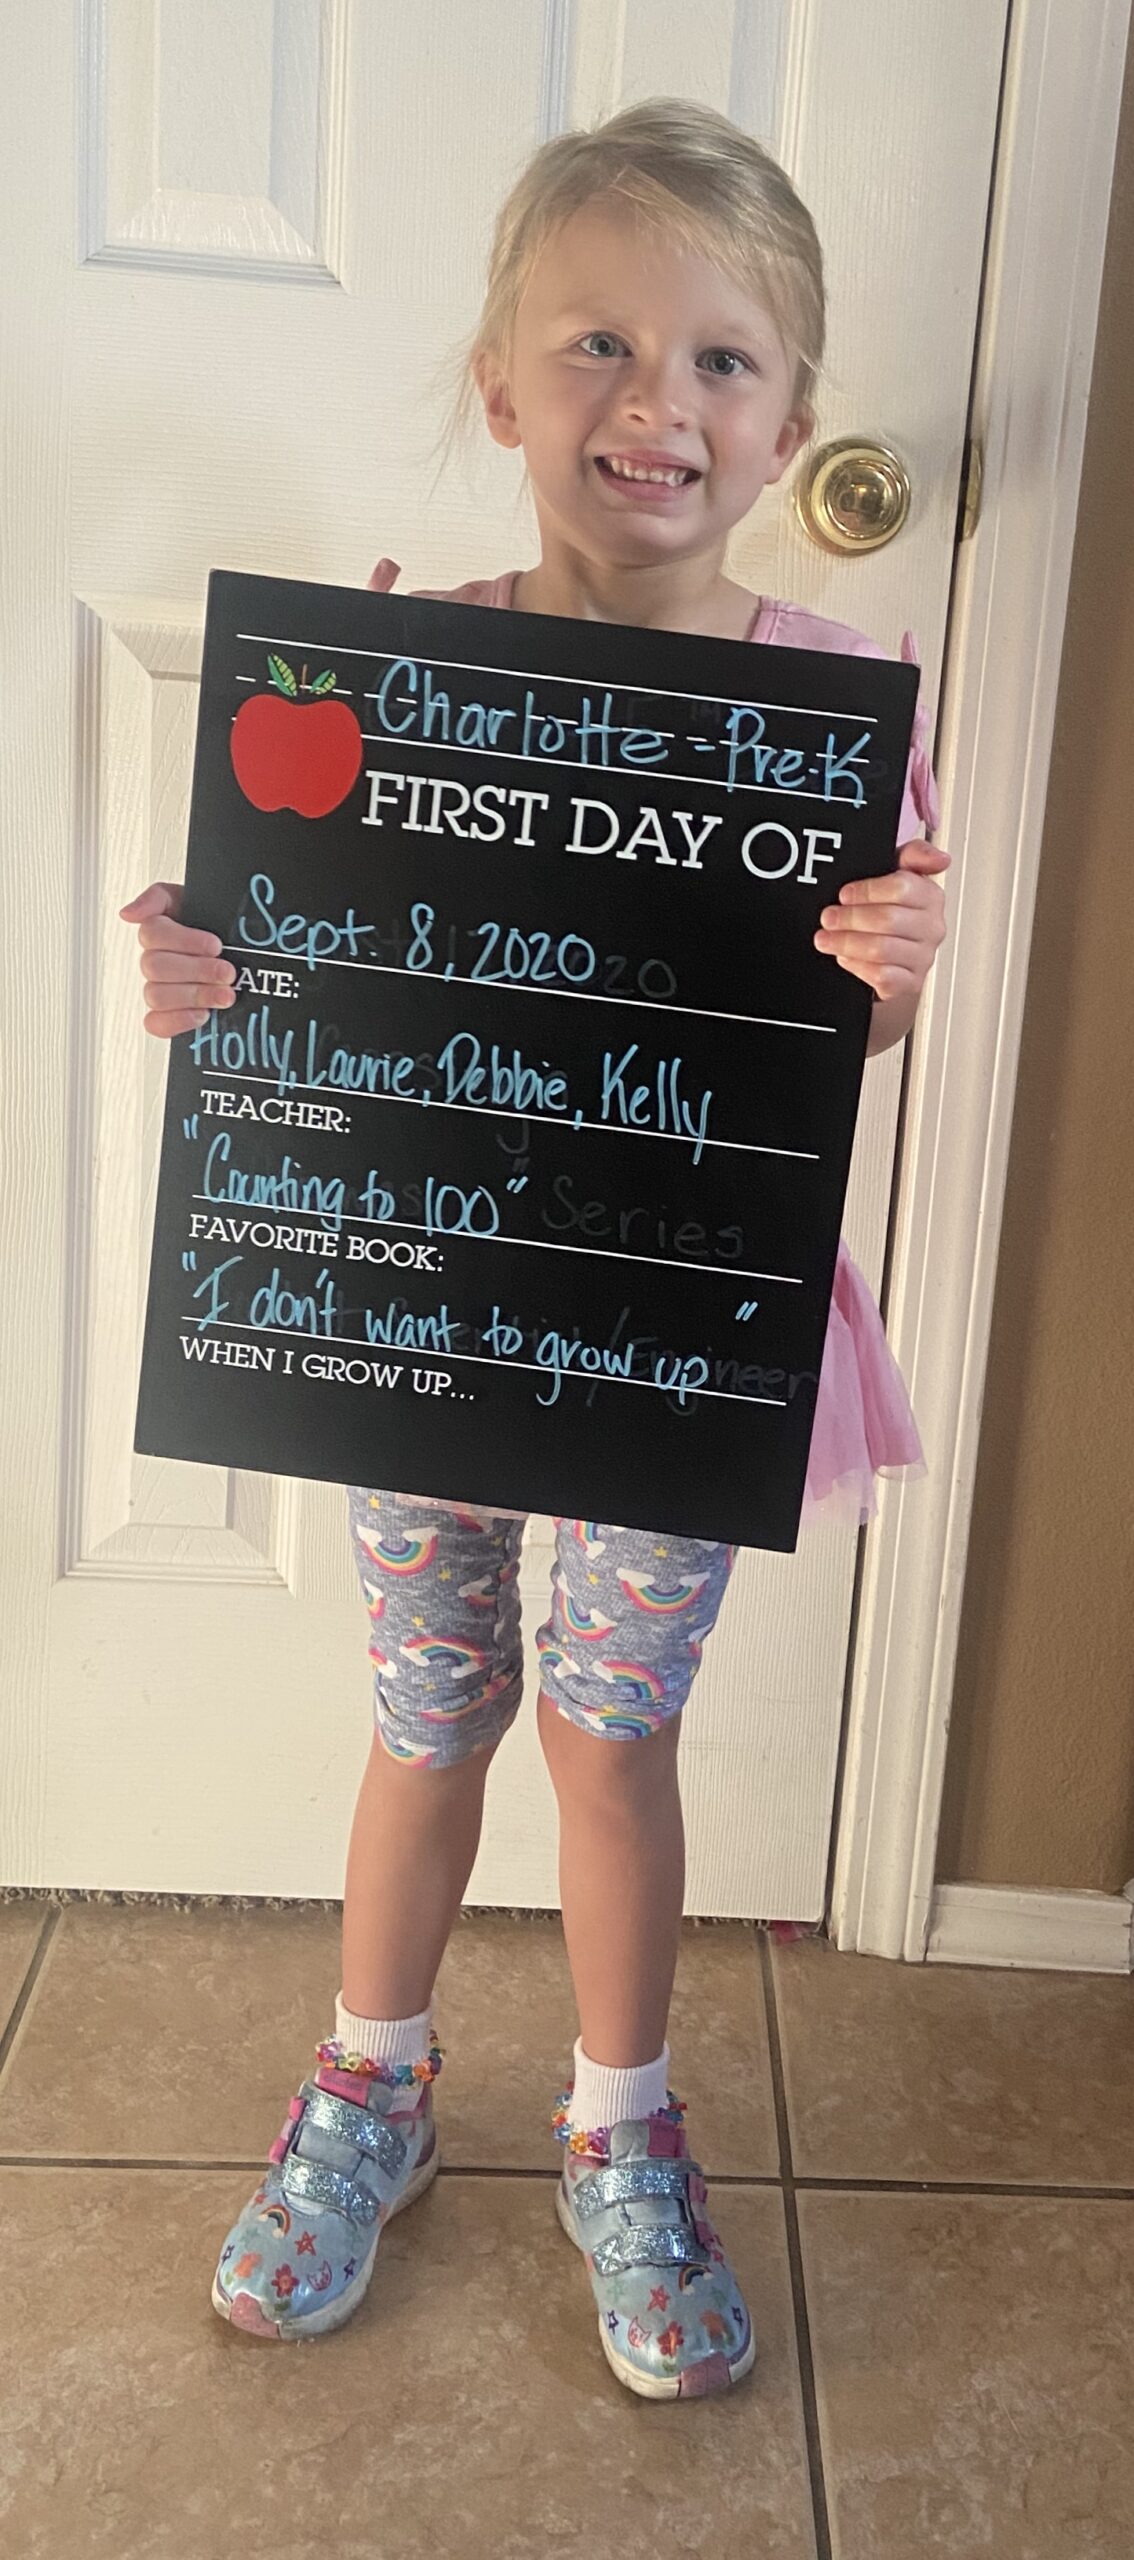 Charlotte - Pre-K
FIRST DAY OF
Sept. 8, 2020
ATE:
Holly, Laurie, Debbie, Kelly
TEACHER:
"Counting to 100" Series
FAVORITE BOOK:
"I don't want to grow up"
WHEN I GROW UP...